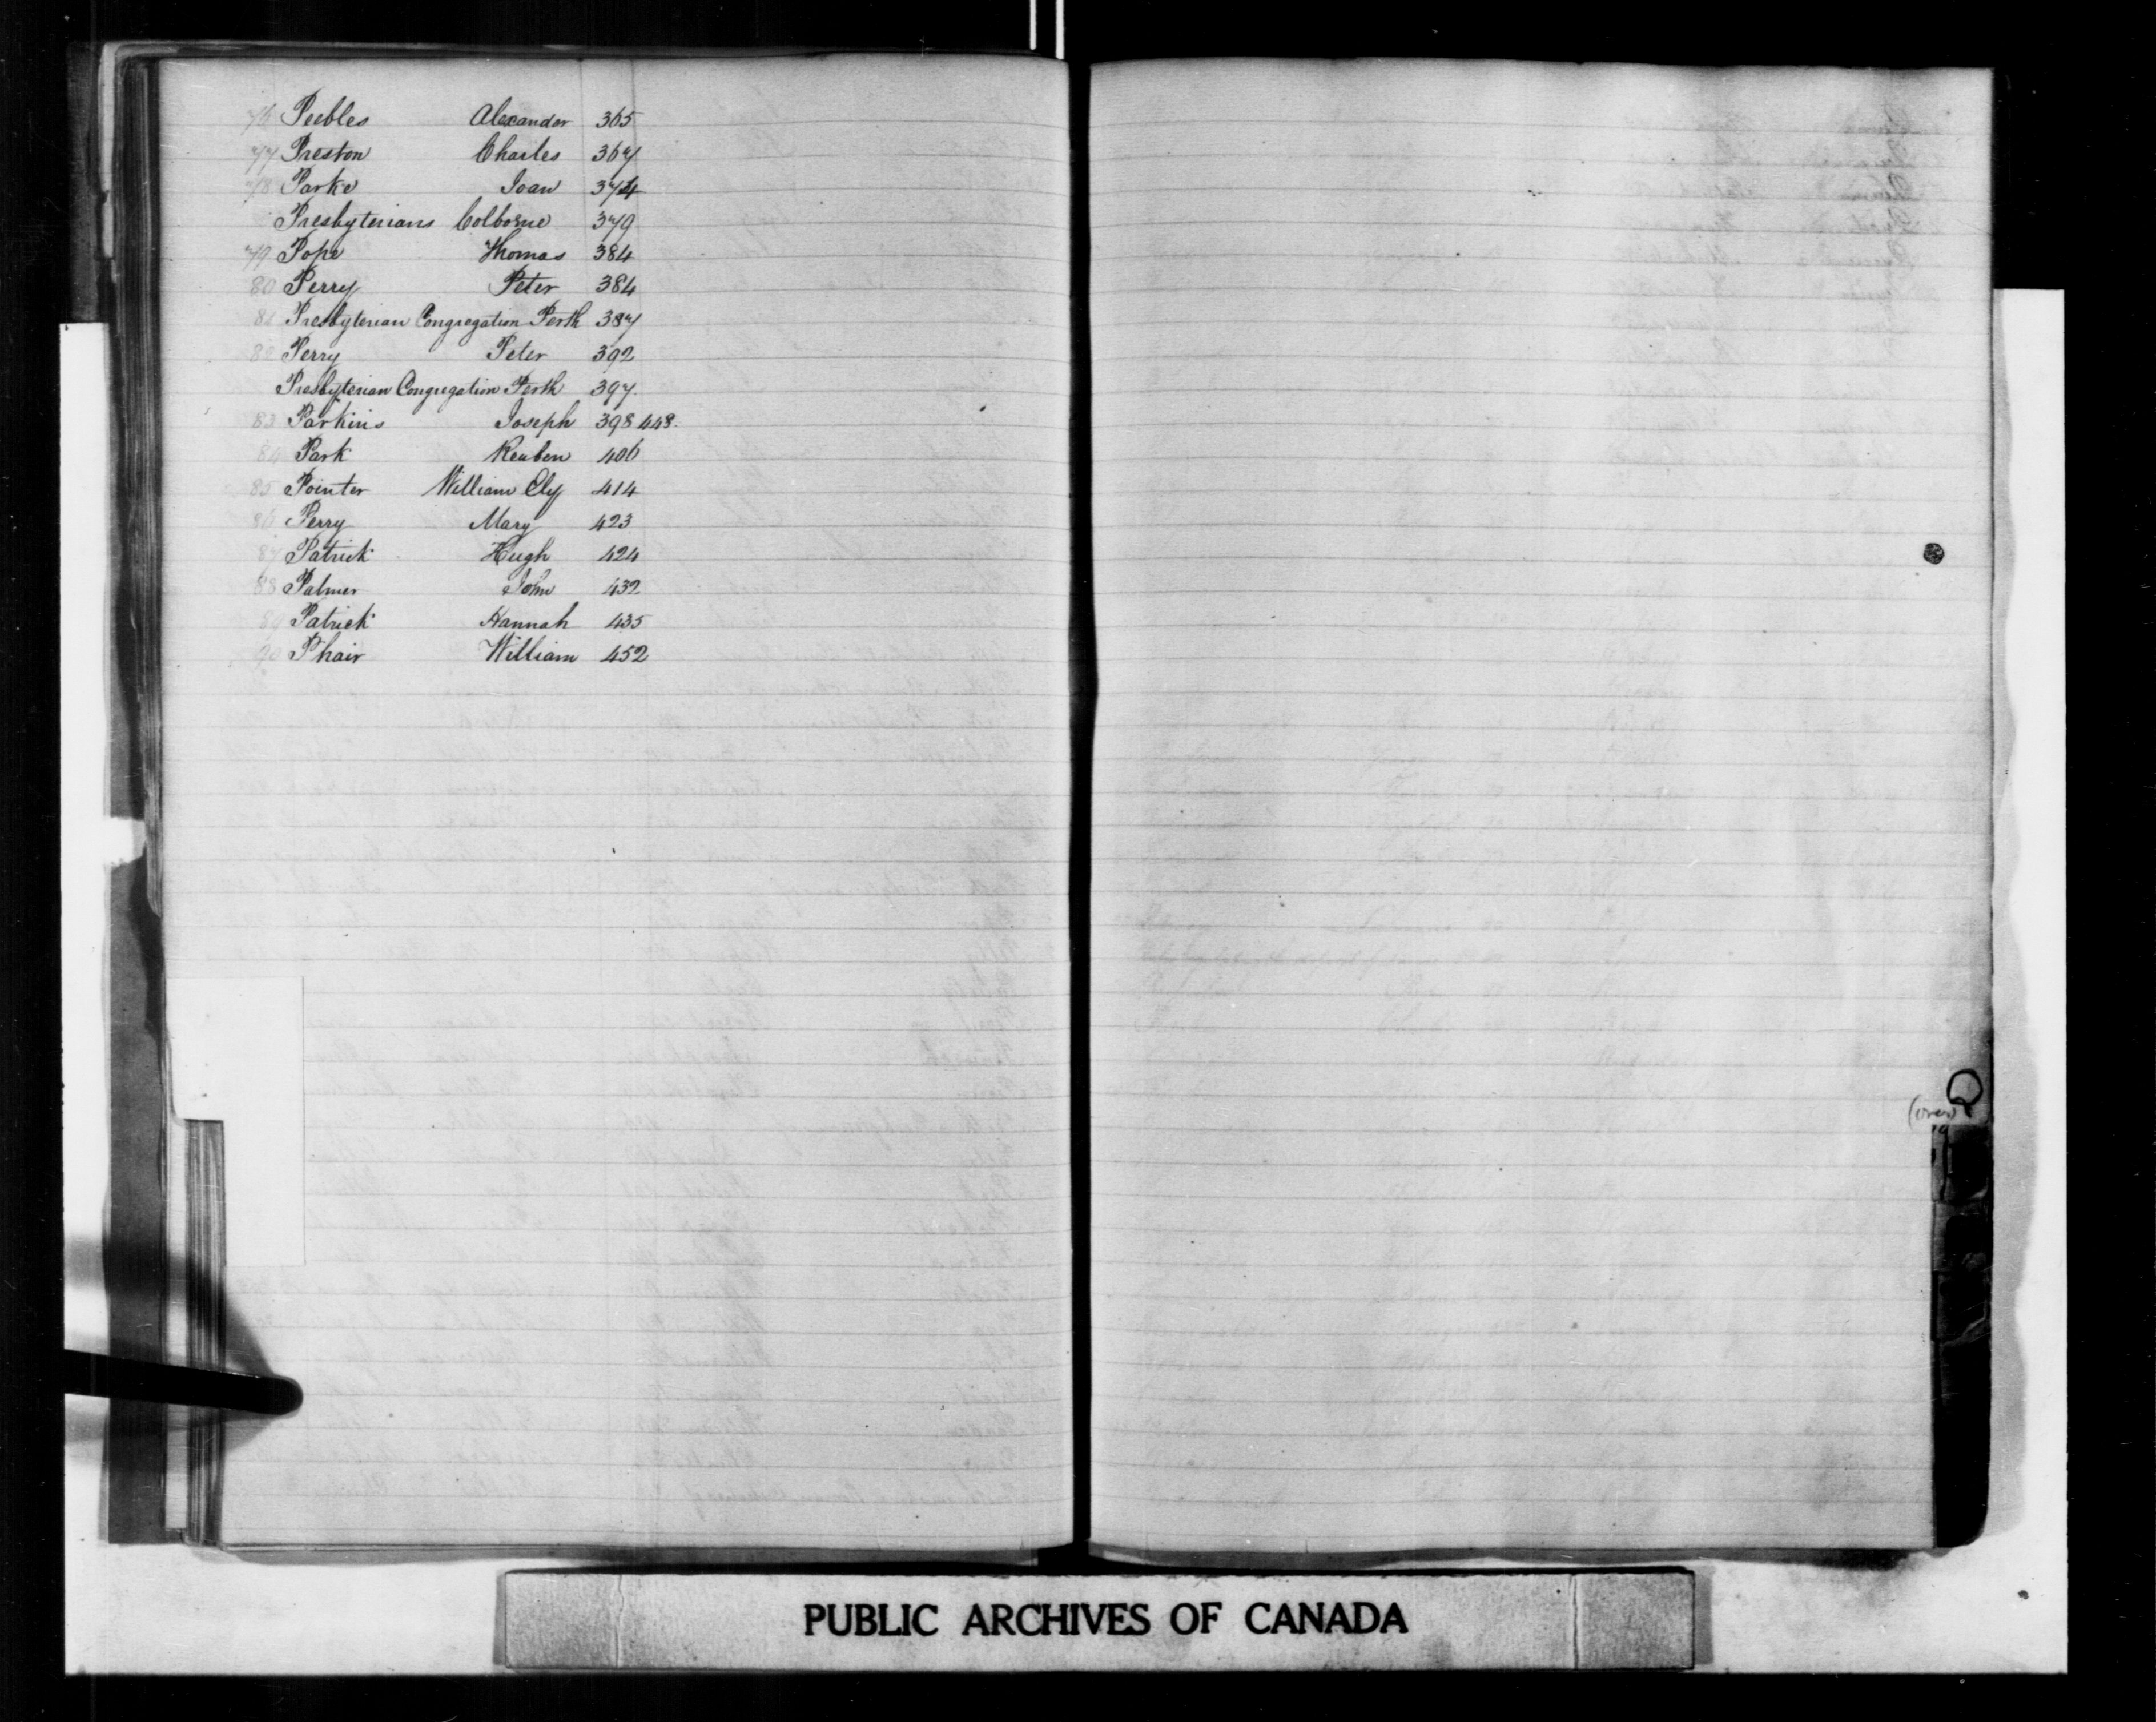 76 Peebles Alexander 365
77 Preston Charles 367
78 Parke Joan 374
Presbyterians Colborne 379
79 Pope Thomas 384
80 Perry Peter 384
81 Presbyterian Congregation Perth 387
82 Perry Peter 392
Presbyterian Congregation Perth 397
83 Parkins Joseph 398 448.
84 Park Reuben 406
85 Pointer William Ely 414
86 Perry Mary 423
87 Patrick Hugh 424
88 Palmer John 432
89 Patrick Hannah 435
90 Phair William 452
Q
(over)
PUBLIC ARCHIVES OF CANADA